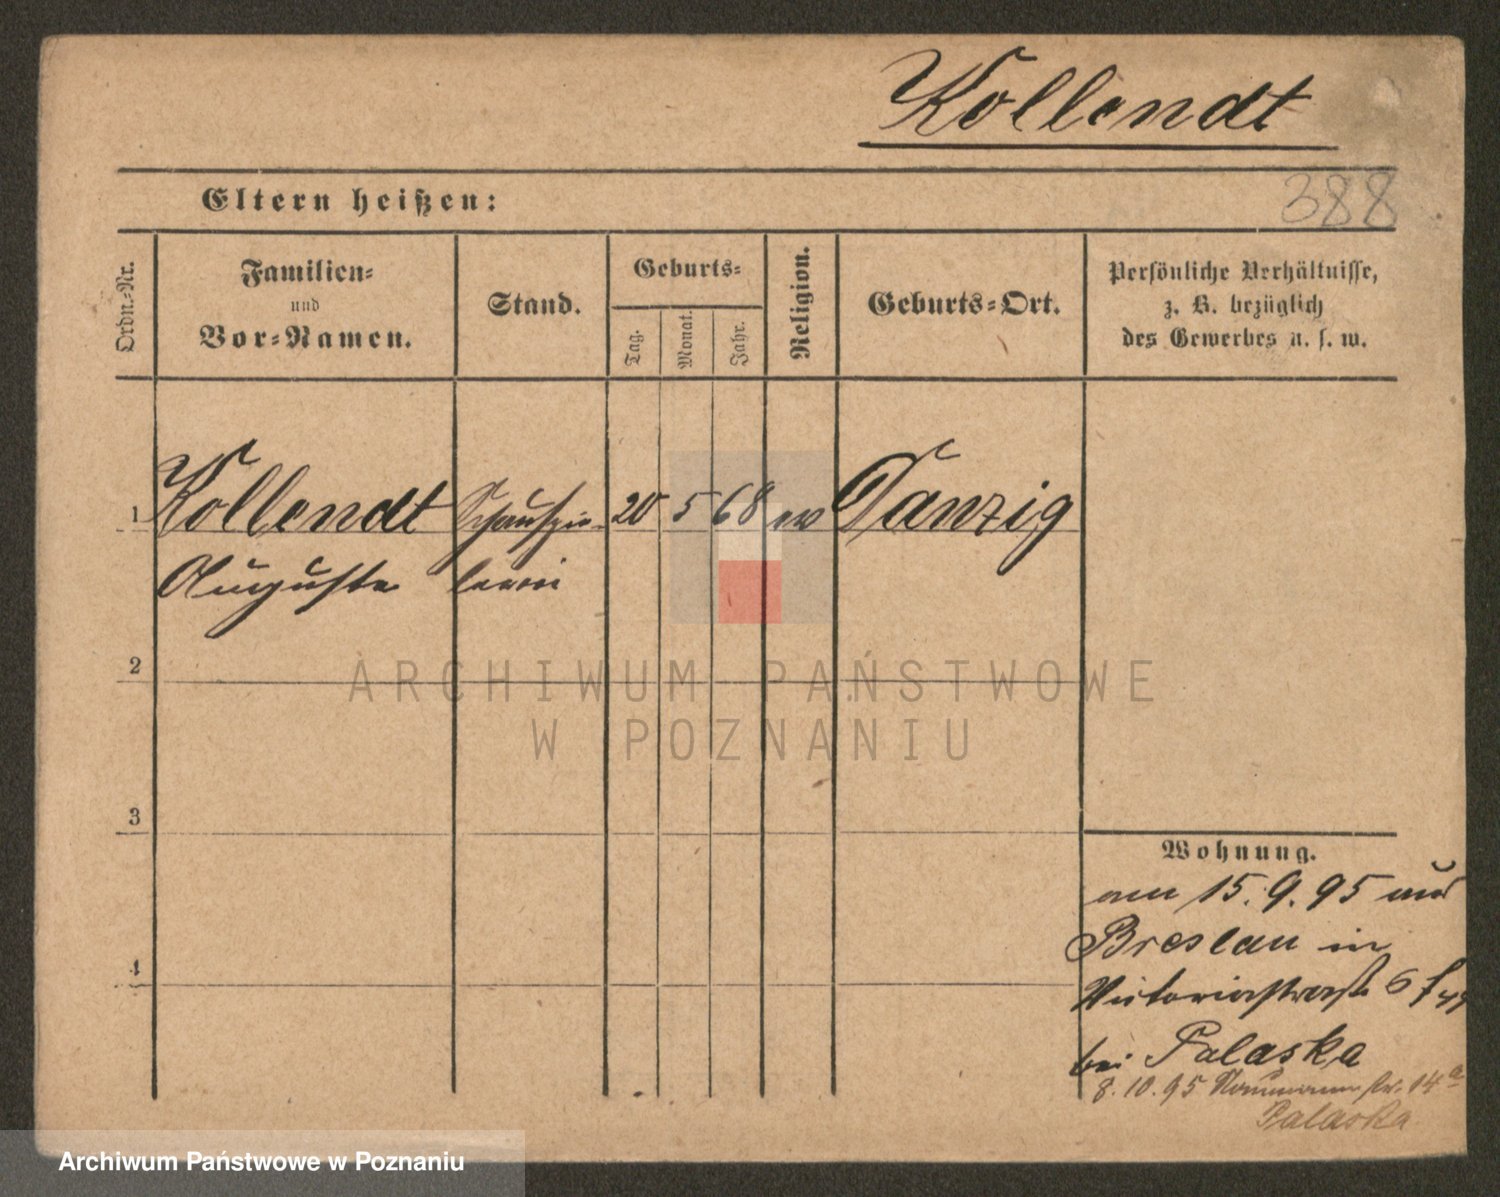 Kollendt
Eltern heißen:
388
Ordn.-Nr.
Familien-
und
Vor-Namen.
Stand.
Geburts-
Tag.
Monat.
Jahr.
Religion.
Geburts-Ort.
Persönliche Verhältnisse,
z. B. bezüglich
des Gewerbes u. s. w.
1 Kollendt Schauspie- 20 5 68 ev Danzig
Auguste lerin
2
ARCHIWUM PAŃSTWOWE
W POZNANIU
3
Wohnung.
am 15.9.95 aus
4
Breslau in
Victoriastraße 6
bei Palaska
8.10.95 Naumannstr. 14a
Palaska
Archiwum Państwowe w Poznaniu